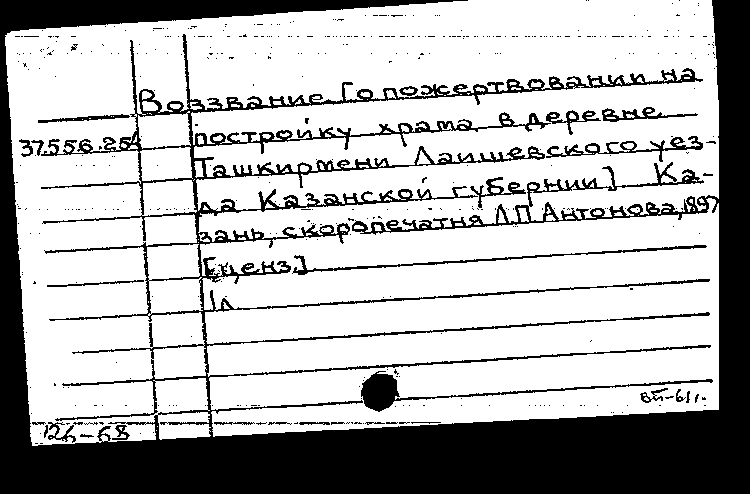 Воззвание [о пожертвовании на
37.556.254 постройку храма в деревне
Ташкирмени Лаишевского уез-
да Казанской губернии] Ка-
зань, скоропечатня Л.П. Антонова, 1897
[ценз.]
1л
126-68